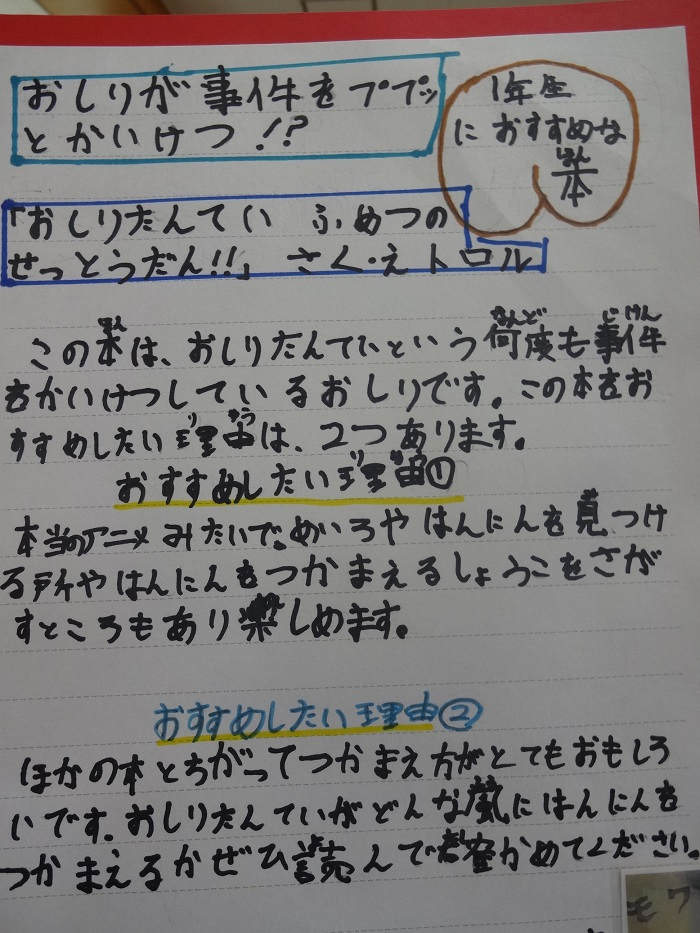 おしりが事件をププッ
とかいけつ!?
1年生
におすすめな
ほん
本
「おしりたんてい ふめつの
せっとうだん!!」 さく・え トロル
ほん なんど じけん
この本は、おしりたんていという何度も事件
をかいけつしているおしりです。この本をお
り ゆう
すすめしたい理由は、2つあります。
おすすめしたい理由①
本当のアニメみたいで。めいろやはんにんを見つけ
る所やはんにんをつかまえるしょうこをさが
すところもあり楽しめます。
おすすめしたい理由②
ほかの本とちがってつかまえ方がとてもおもしろ
いです。おしりたんていがどんな風にはんにんを
よ
つかまえるかぜひ読んで確かめてください。
モワ